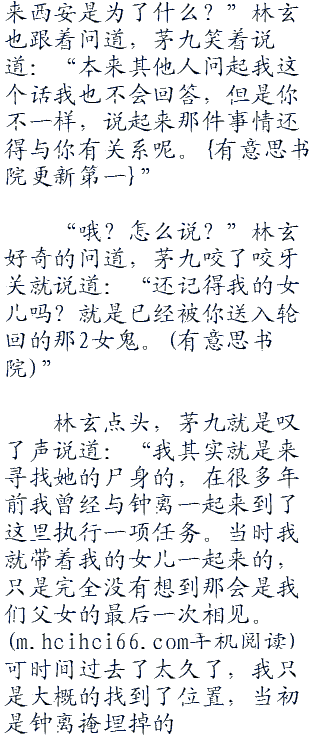 来西安是为了什么？”林玄
也跟着问道，茅九笑着说
道：“本来其他人问起我这
个话我也不会回答，但是你
不一样，说起来那件事情还
得与你有关系呢。{有意思书
院更新第一}”
“哦？怎么说？”林玄
好奇的问道，茅九咬了咬牙
关就说道：“还记得我的女
儿吗？就是已经被你送入轮
回的那2女鬼。(有意思书
院)”
林玄点头，茅九就是叹
了声说道：“我其实就是来
寻找她的尸身的，在很多年
前我曾经与钟离一起来到了
这里执行一项任务。当时我
就带着我的女儿一起来的，
只是完全没有想到那会是我
们父女的最后一次相见。
(m.hcihci66.com手机阅读)
可时间过去了太久了，我只
是大概的找到了位置，当初
是钟离掩埋掉的